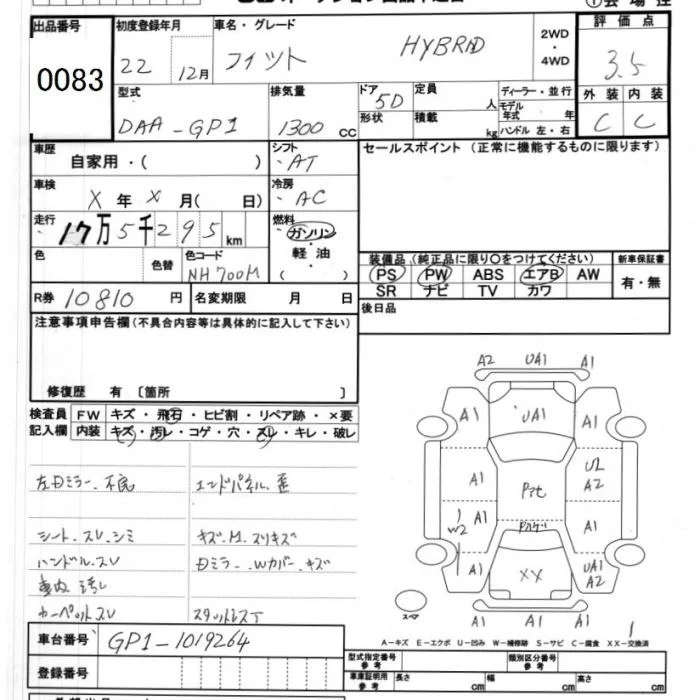 出品番号
0083
初度登録年月
22 12月
車名・グレード
フィット HYBRID
2WD
・
4WD
評価点
3.5
外装 内装
C C
型式
DAA-GP1
排気量
1300 cc
ドア
5D
形状
定員
人
積載
kg
ディーラー・並行
モデル年式 年
ハンドル 左・右
車歴
自家用・( )
シフト
AT
セールスポイント(正常に機能するものに限ります)
車検
X 年 X 月( 日)
冷房
AC
走行
17万5千295km
燃料
ガソリン
・
軽油
( )
色
色替
色コード
NH700M
装備品(純正品に限り○をつけてください)
PS PW ABS エアB AW
SR ナビ TV カワ
新車保証書
有・無
R券 10810 円
名変期限 月 日
後日品
注意事項申告欄(不具合内容等は具体的に記入して下さい)
修復歴 有〔箇所 〕
検査員記入欄
FW キズ・飛石・ヒビ割・リペア跡・×要
内装 キズ・汚レ・コゲ・穴・スレ・キレ・破レ
左Dミラー、不良 エンドパネル、歪
シート、スレ、シミ キズ、M、スリキズ
ハンドル、スレ Dミラー、Wカバー、キズ
車内 汚レ
カーペットスレ スタットレス丁
A2 UA1 A1
A1 UA1 A1
A1 U2 A2
Pﾏt
W2 A1 A1
A1 XX UA1 A2
スペア
A1 A1 A1
A-キズ E-エクボ U-凹み W-補修跡 S-サビ C-腐食 XX-交換済
車台番号 GP1-1019264
登録番号
型式指定番号 参考
類別区分番号 参考
車庫証明用 参考 長さ cm 幅 cm 高さ cm